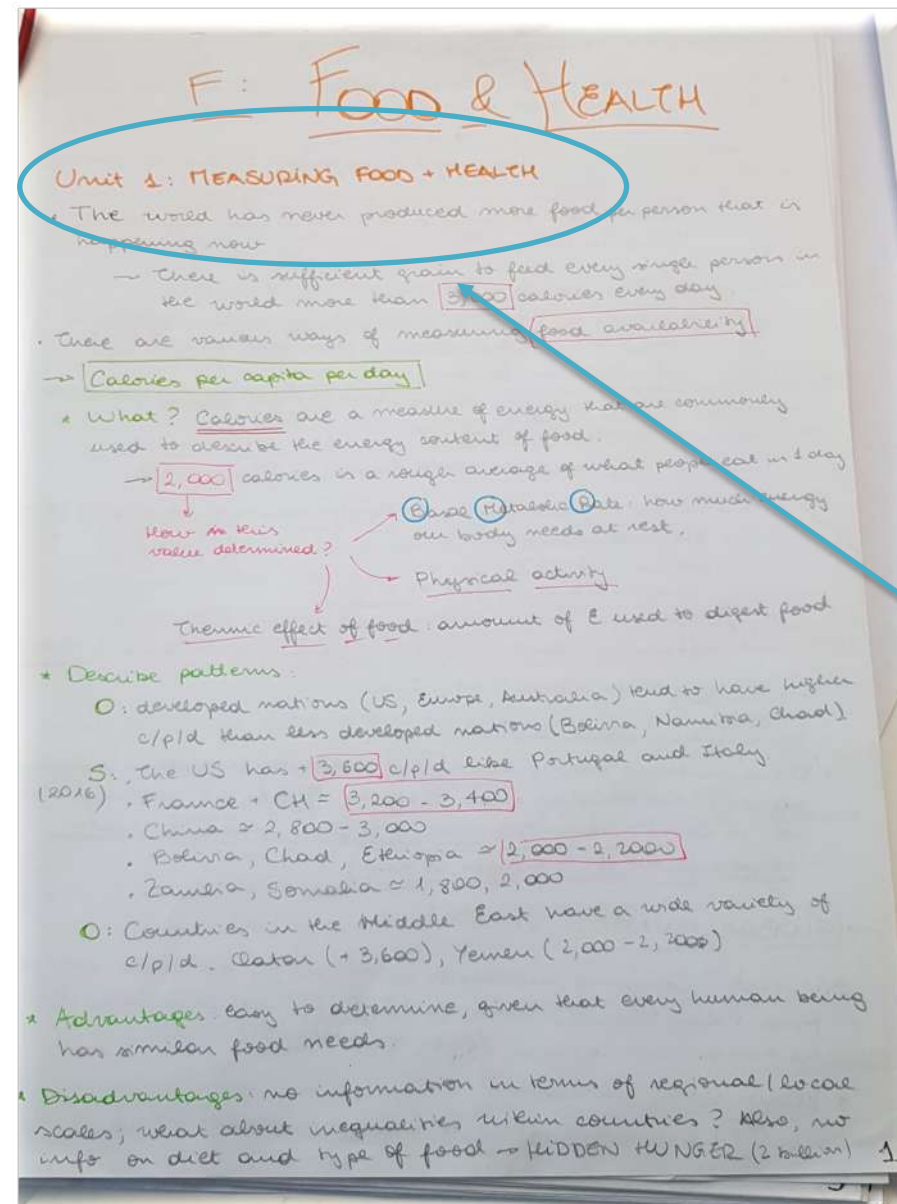 F: FOOD & HEALTH
Unit 1: MEASURING FOOD + HEALTH
• The world has never produced more food per person that is
happening now
→ there is sufficient grain to feed every single person in
the world more than calories every day.
• There are various ways of measuring food availability
→ Calories per capita per day
* What? Calories are a measure of energy that are commonly
used to describe the energy content of food.
→ 2,000 calories is a rough average of what people eat in 1 day
How is this
value determined?
Basal Metabolic Rate: how much energy
our body needs at rest.
Physical activity
Thermic effect of food: amount of E used to digest food
* Describe patterns:
O: developed nations (US, Europe, Australia) tend to have higher
c/p/d than less developed nations (Bolivia, Namibia, Chad).
S: • The US has + 3,600 c/p/d like Portugal and Italy
(2016) • France + CH = 3,200 - 3,400
• China ≈ 2,800 - 3,000
• Bolivia, Chad, Ethiopia ≈ 2,000 - 2,2000
• Zambia, Somalia ≈ 1,800, 2,000
O: Countries in the Middle East have a wide variety of
c/p/d. Qatar (+ 3,600), Yemen (2,000 - 2,2000)
* Advantages: easy to determine, given that every human being
has similar food needs.
* Disadvantages: no information in terms of regional/local
scales; what about inequalities within countries? Also, no
info on diet and type of food → HIDDEN HUNGER (2 billion) 1